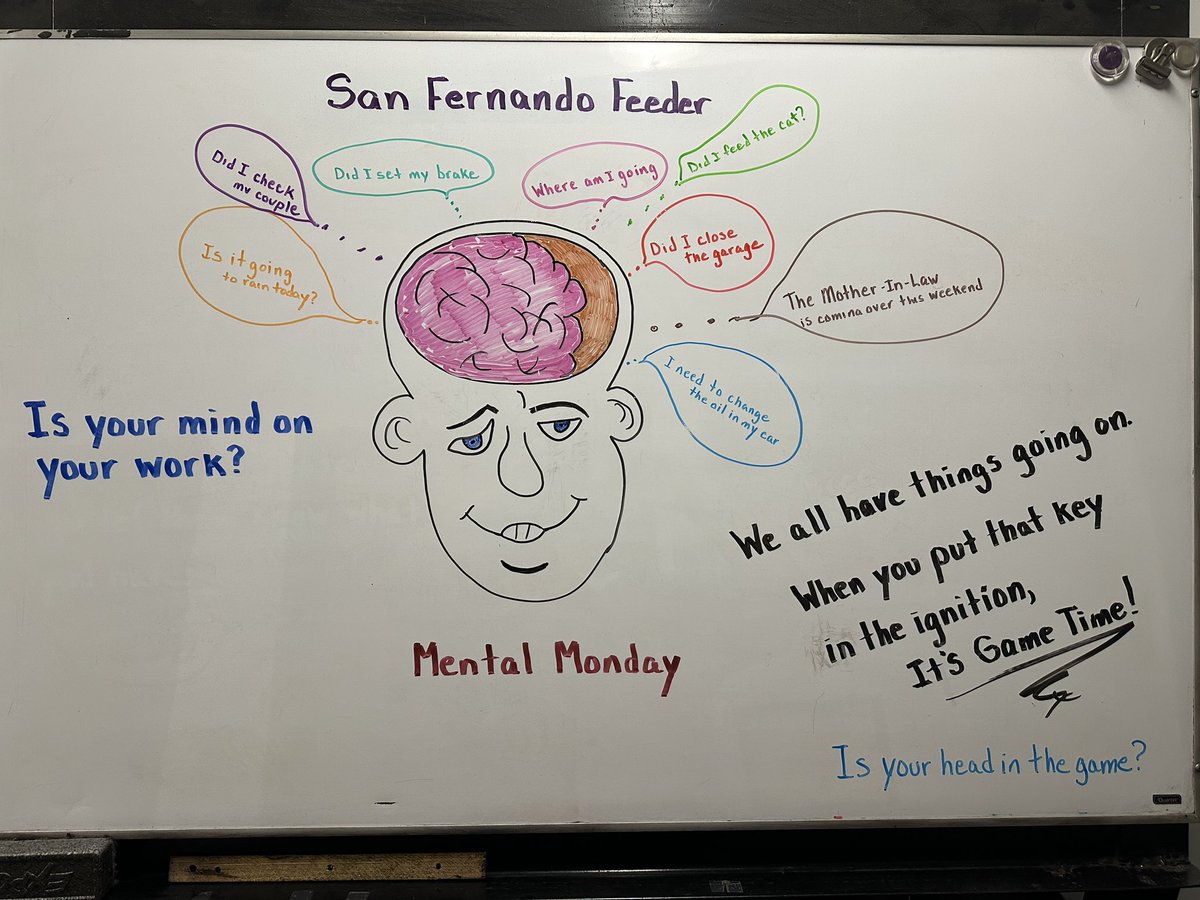 San Fernando Feeder
Did I check
my couple
Did I set my brake
Where am I going
Did I feed the cat?
Is it going
to rain today?
Did I close
the garage
The Mother-In-Law
is coming over this weekend
I need to change
the oil in my car
Is your mind on
your work?
We all have things going on.
When you put that key
in the ignition,
It's Game Time!
Mental Monday
Is your head in the game?
Quartet